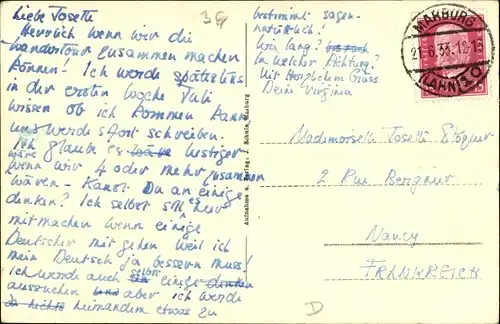 Liebe Josette
Herrlich wenn wir die
Wandertour zusammen machen
können! Ich werde spätestens
in der ersten Woche Juli
wissen ob ich kommen kann
und werde sofort schreiben.
Ich glaube es wäre lustiger
wenn wir 4 oder mehr zusammen
wären - Kannst Du an einige
denken? Ich selbst soll
mitmachen wenn einige
Deutscher mit gehen weil ich
mein Deutsch ja bessern muss!
Ich werde auch selbst einige
aussuchen aber ich werde
niemandem etwas zu
bestimmt sagen
natürlich!
Wie lang?
In welcher Richtung?
Mit Herzlichem Gruss
Deine Virginia
39
MARBURG
21.6.33.12-13
(LAHN)
15
Mademoiselle Josette
2 Rue Bergner
Nancy
FRANKREICH
D
Aufnahme u. Verlag: J. Schulz, Marburg